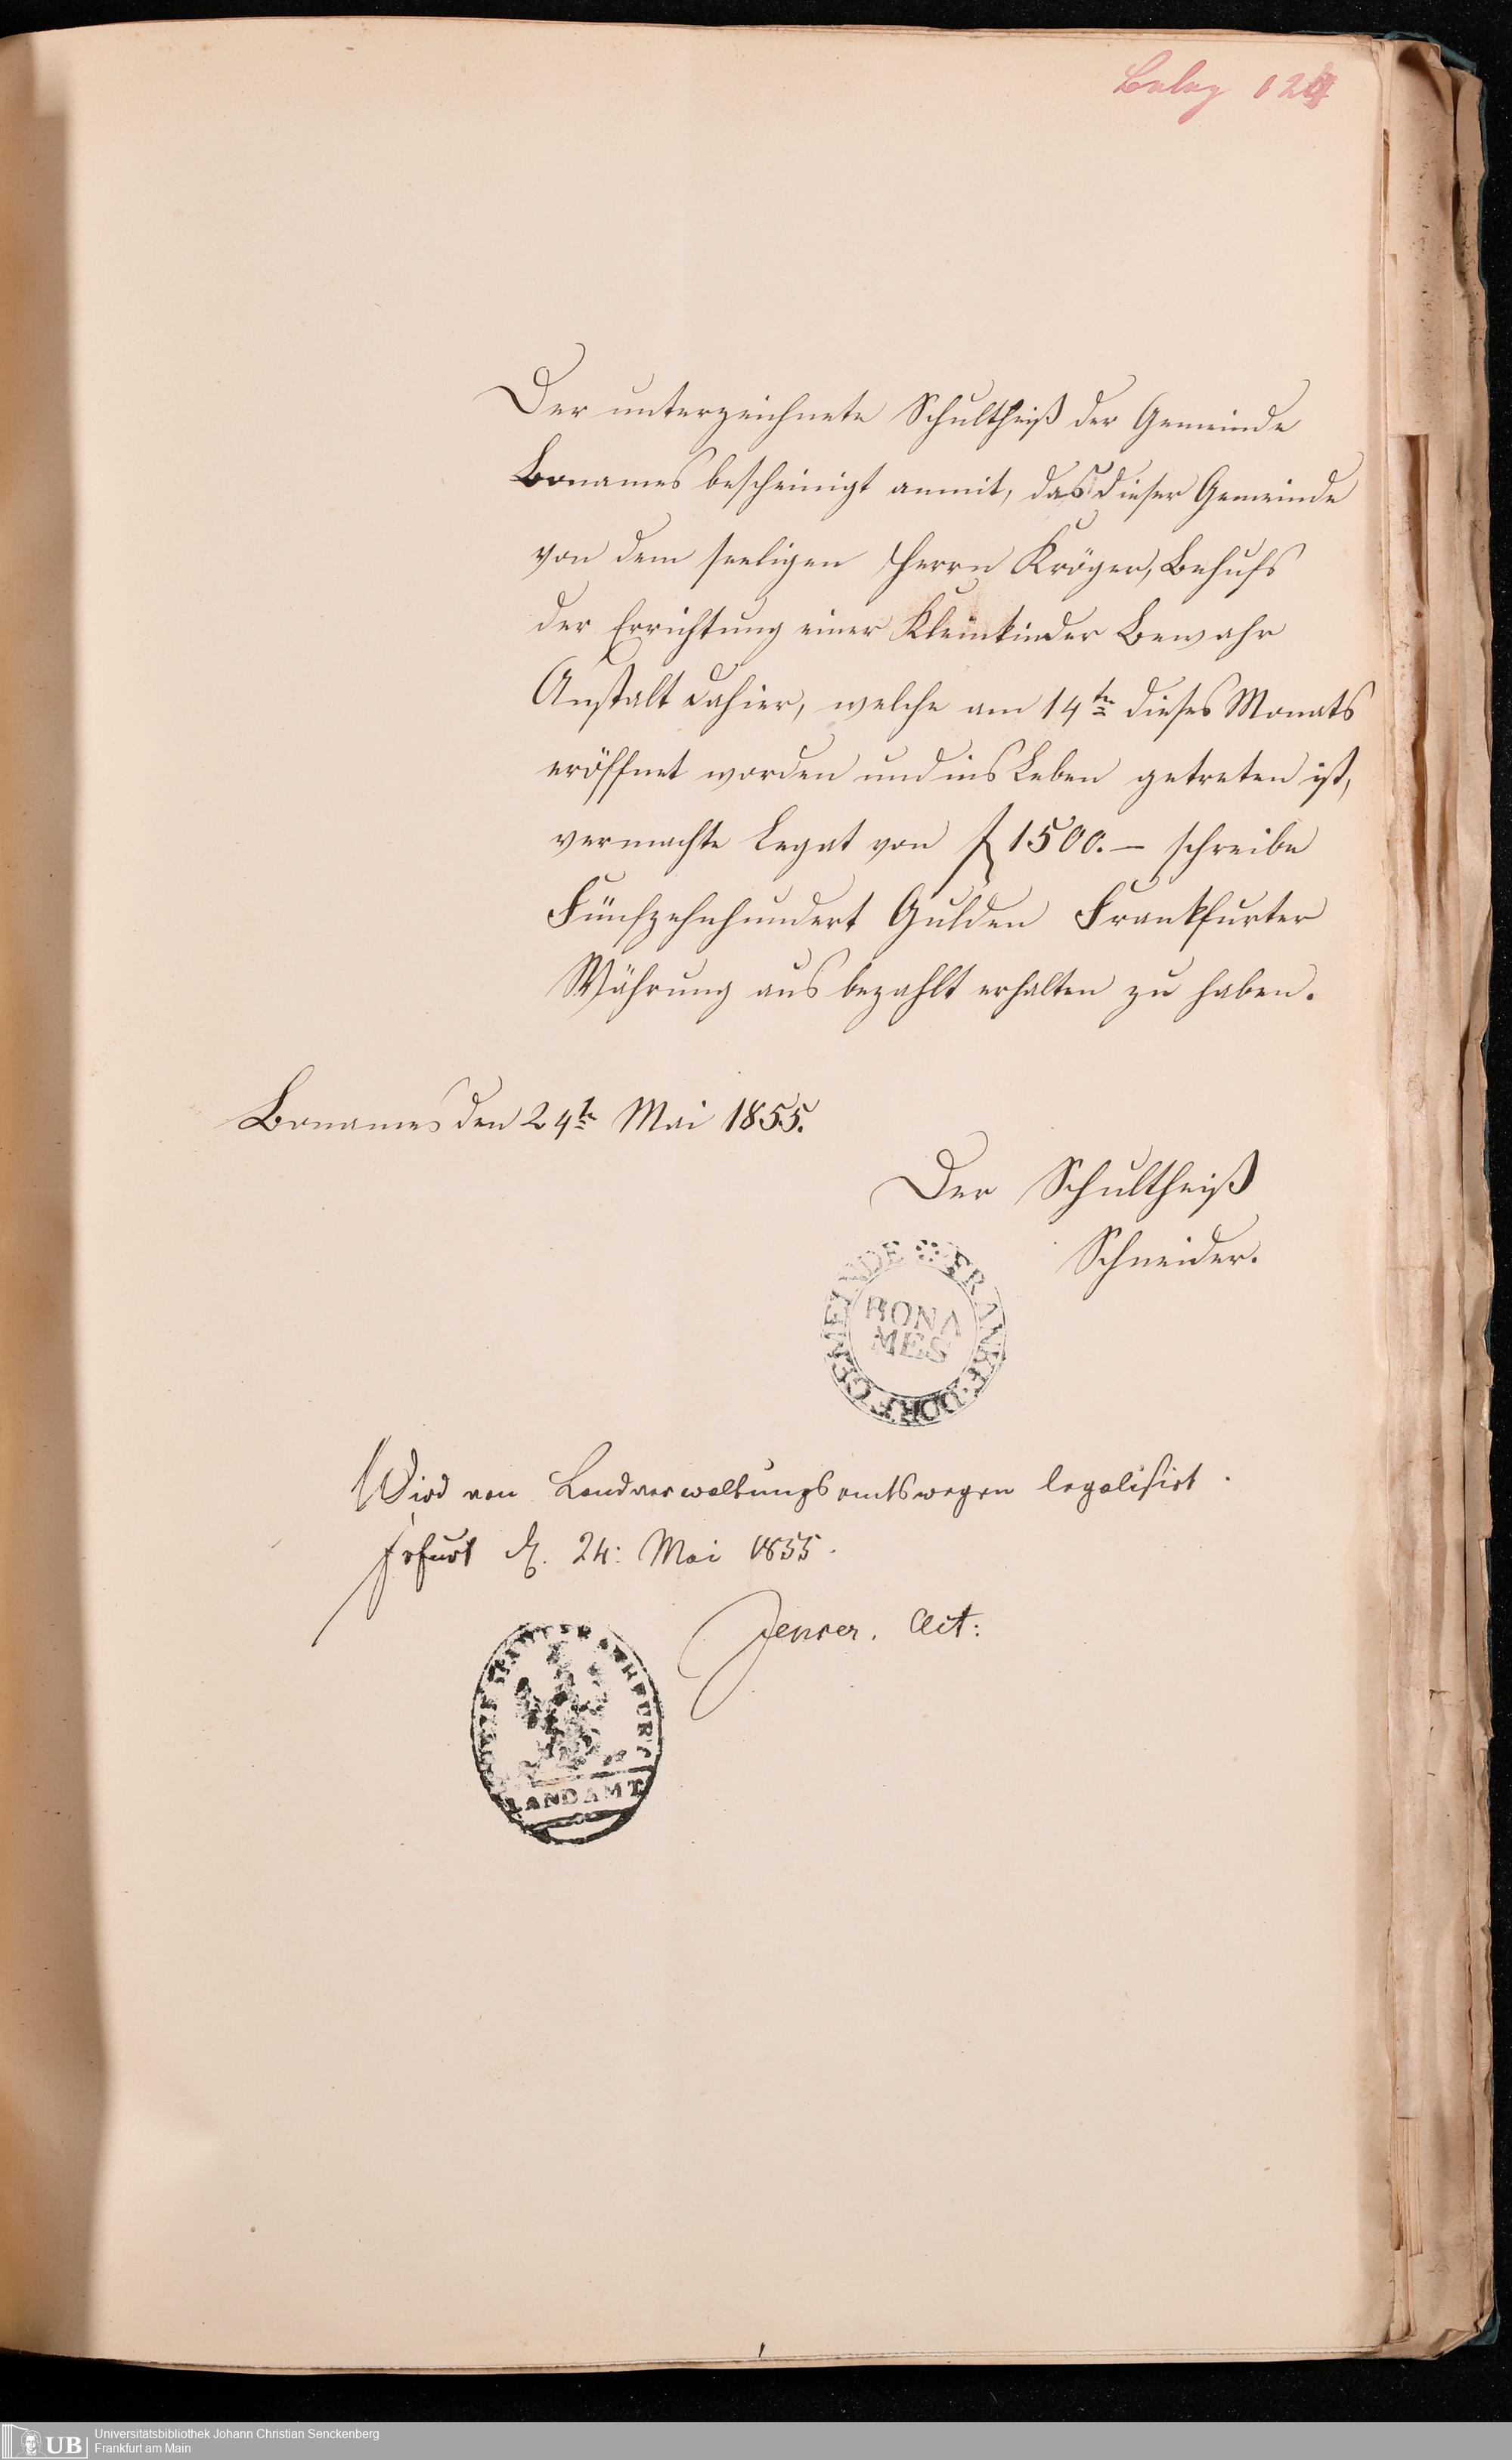 Beleg 124
Der unterzeichnete Schultheiß der Gemeinde
Bonames bescheinigt anmit, das dieser Gemeinde
von dem seeligen Herrn Kröger, Behufs
der Errichtung einer Kleinkinder Bewahr
Anstalt dahier, welche am 14tn dieses Monats
eröffnet worden und ins Leben getreten ist,
vermachte Legat von f 1500.— schreibe
Fünfzehnhundert Gulden Frankfurter
Währung aus bezahlt erhalten zu haben.
Bonames den 24tn Mai 1855.
Der Schultheiß
Schneider.
FRANKF. DORFGEMEINDE
BONA
MES
Wird von Landverwaltungsamtswegen legalisirt.
Frfurt d. 24: Mai 1855.
Act:
LANDAMT
UB
Universitätsbibliothek Johann Christian Senckenberg
Frankfurt am Main